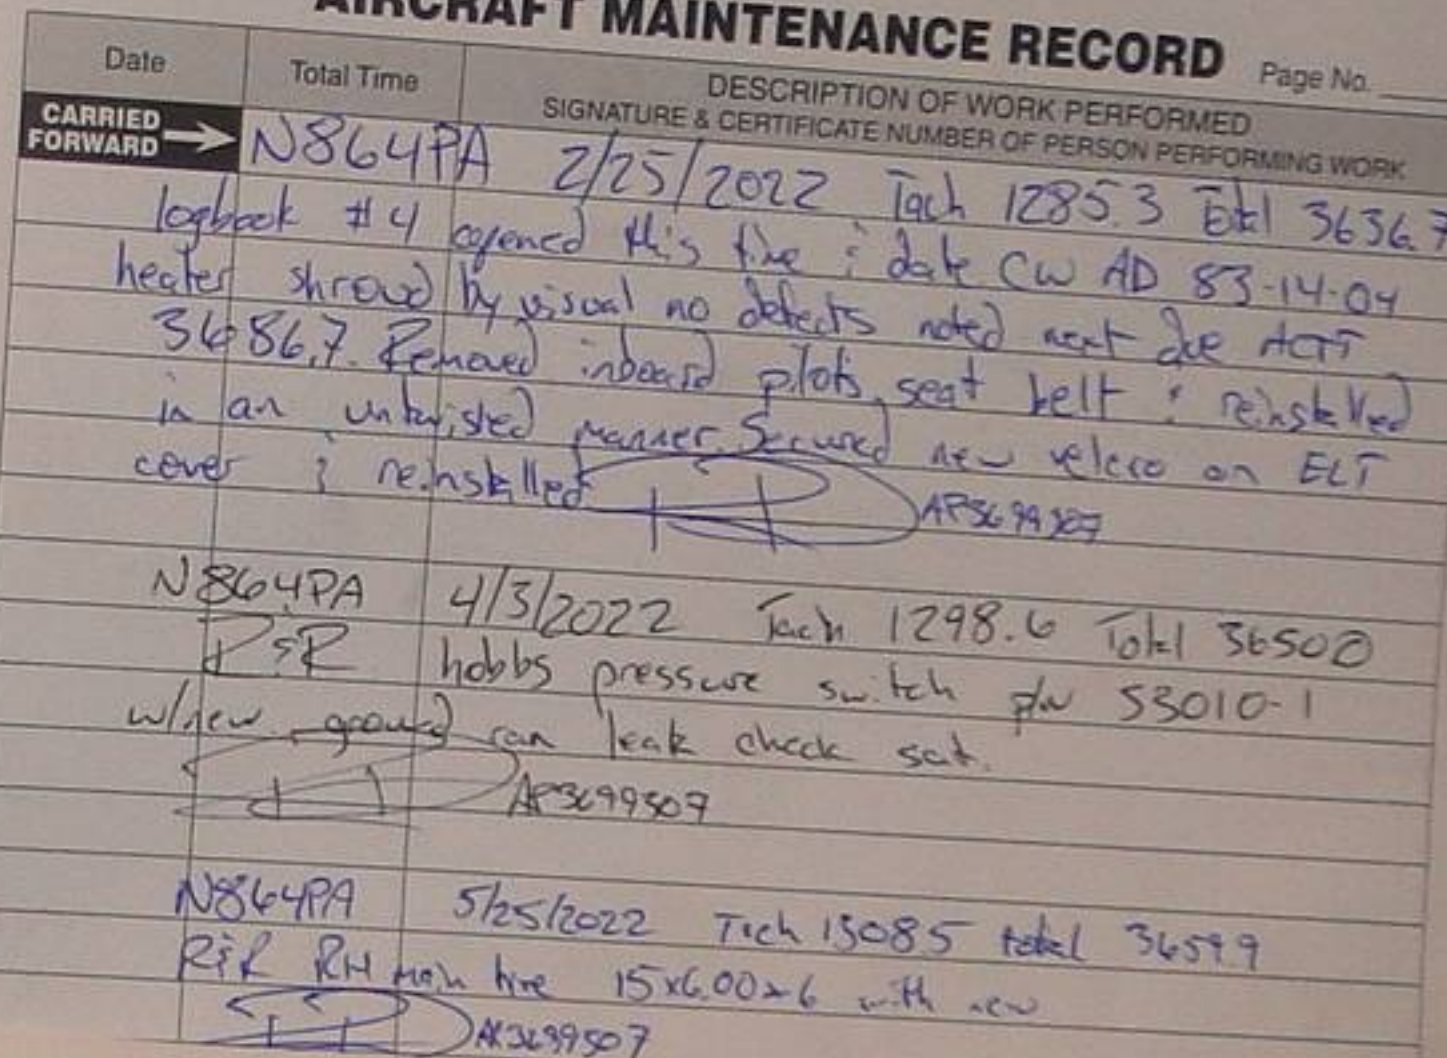 AIRCRAFT MAINTENANCE RECORD
Page No.
Date Total Time DESCRIPTION OF WORK PERFORMED
SIGNATURE & CERTIFICATE NUMBER OF PERSON PERFORMING WORK
CARRIED
FORWARD
N864PA 2/25/2022 Tach 1285.3 Total 3636.7
logbook #4 opened this time & date CW AD 83-14-04
heater shroud by visual no defects noted next due ACTT
3686.7. Removed inboard pilots seat belt & reinstalled
in an untwisted manner. Secured new velcro on ELT
cover & reinstalled
AP3699507
N864PA 4/3/2022 Tach 1298.6 Total 3650.0
R&R hobbs pressure switch p/n 53010-1
w/new ground run leak check sat.
AP3699507
N864PA 5/25/2022 Tach 1308.5 total 3659.9
R&R RH main tire 15x6.00x6 with new
AP3699507